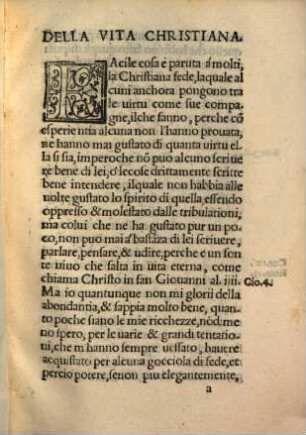 DELLA VITA CHRISTIANA.
FAcile cosa e paruta a molti,
la Christiana fede, laquale al
cuni anchora pongono tra
le uirtu come sue compa
gne, ilche fanno, perche cõ
esperientia alcuna non l'hanno prouata,
ne hanno mai gustato di quanta uirtu el
la si sia, imperoche nõ puo alcuno scriue
re bene di lei, o le cose drittamente scritte
bene intendere, ilquale non habbia alle
uolte gustato lo spirito di quella, essendo
oppresso & molestato dalle tribulationi,
ma colui che ne ha gustato pur un po
co, non puo mai a bastãza di lei scriuere,
parlare, pensare, & udire, perche e un fon
te uiuo che salta in uita eterna, come
chiama Christo in san Giouanni al. iiii.
Gio. 4.
Ma io quantunque non mi glorii della
abondantia, & sappia molto bene, quan
to poche siano le mie ricchezze, nõdime
no spero, per le uarie & grandi tentatio
ni, che m'hanno sempre uessato, hauere
acquistato per alcuna gocciola di fede, et
percio potere, se non piu elegantemente,
a